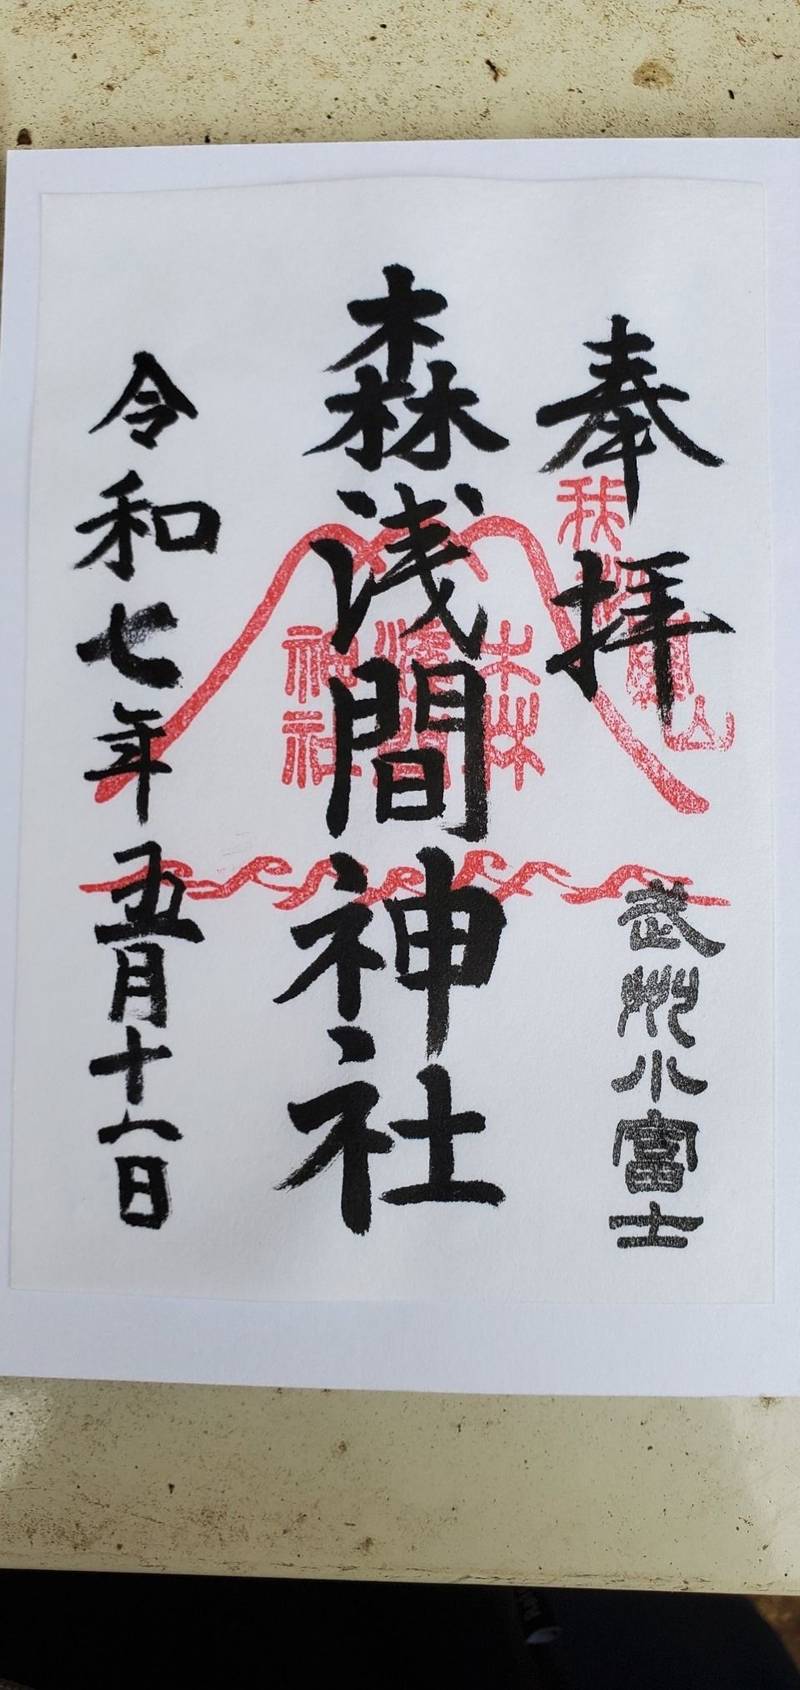 奉拝
武州小富士
森浅間神社
森
浅間
神社
令和七年五月十六日